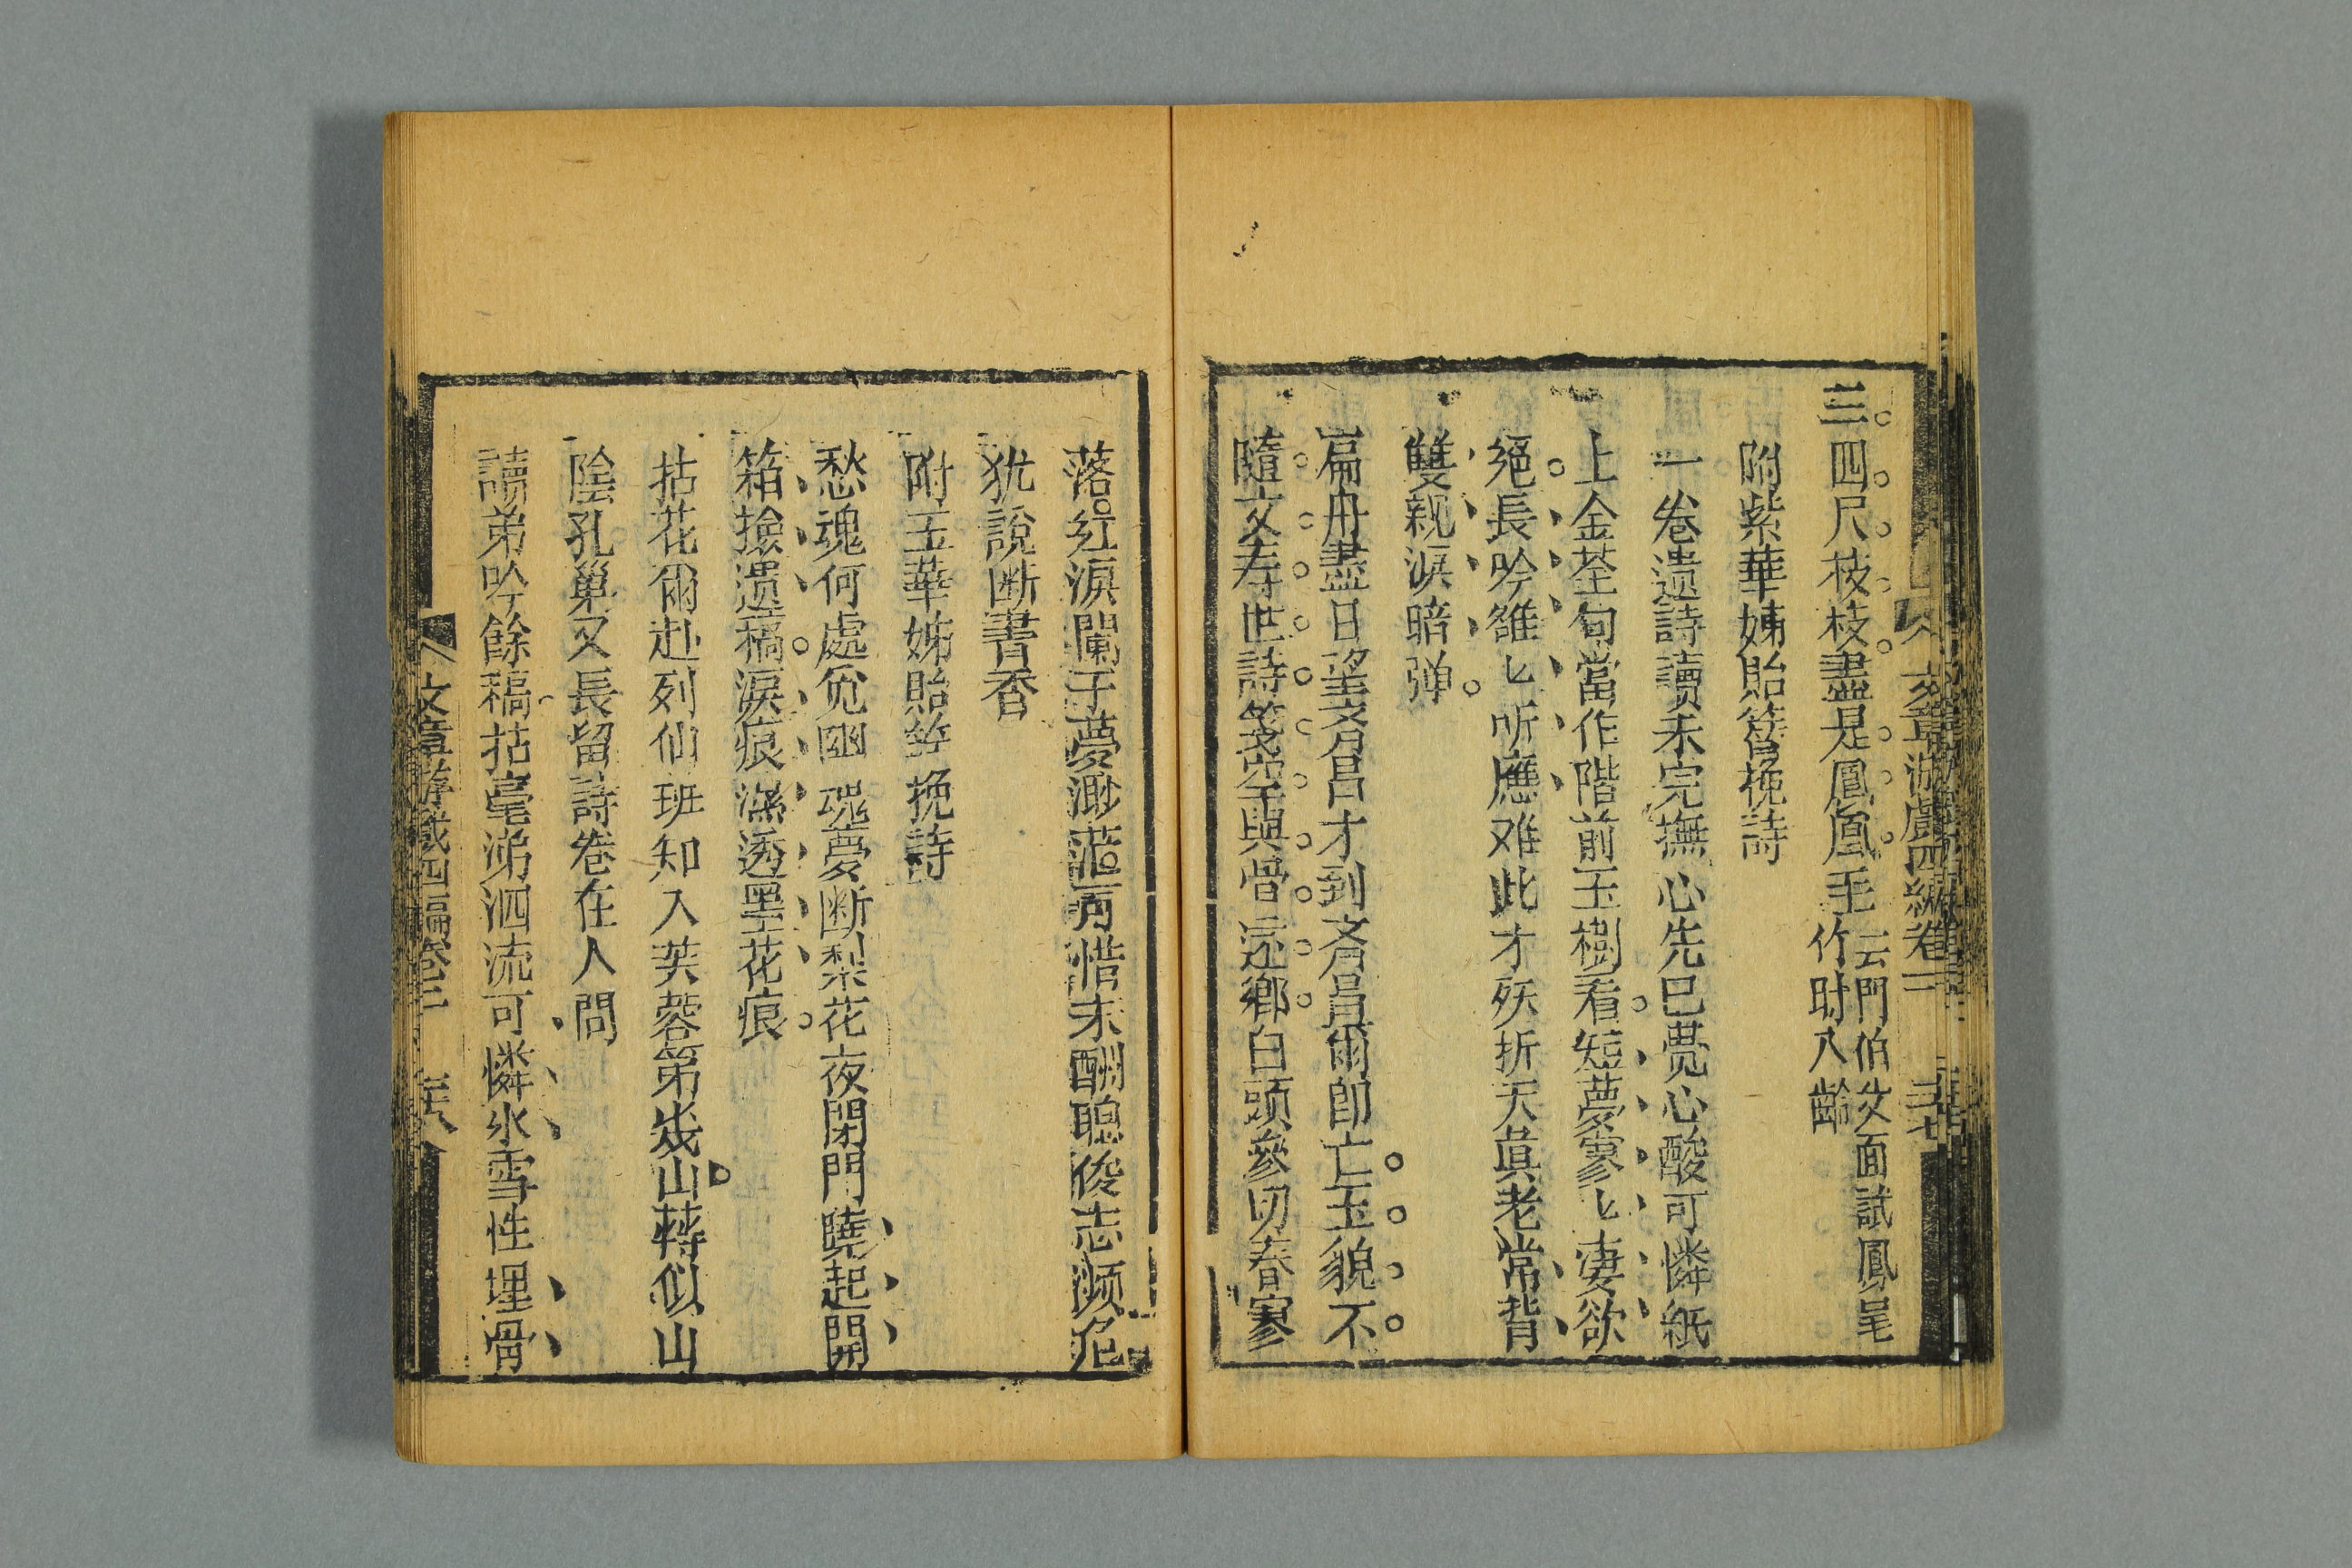 文章游戲四編卷二 三十七
三四尺枝枝盡是鳳凰毛
云門伯父面試鳳尾
竹时八齡
附紫華姊貽簪挽詩
一卷遗詩讀未完撫心先已覺心酸可憐紙
上金荃句當作階前玉樹看短夢寥匕淒欲
絕長吟雒匕听應难此才殀折天真老常背
雙親淚暗弹
扁舟盡日望斉昌才到斉昌爾卽亡玉貌不
隨文寿世詩箋空與骨还鄉白頭參切春寥
落红淚闌干夢渺茫所惜未酬聰俊志濒危
犹說断書香
附玉華姊貽笄挽詩
愁魂何處觅幽魂夢断梨花夜閉門曉起開
箱撿遗稿淚痕濕透墨花痕
拈花爾赴列仙班知入芙蓉第㡬山轉似山
陰孔巢父長留詩卷在人間
讀弟吟餘稿拈毫涕泗流可憐氷雪性埋骨
文章游戲四編卷二 三十八